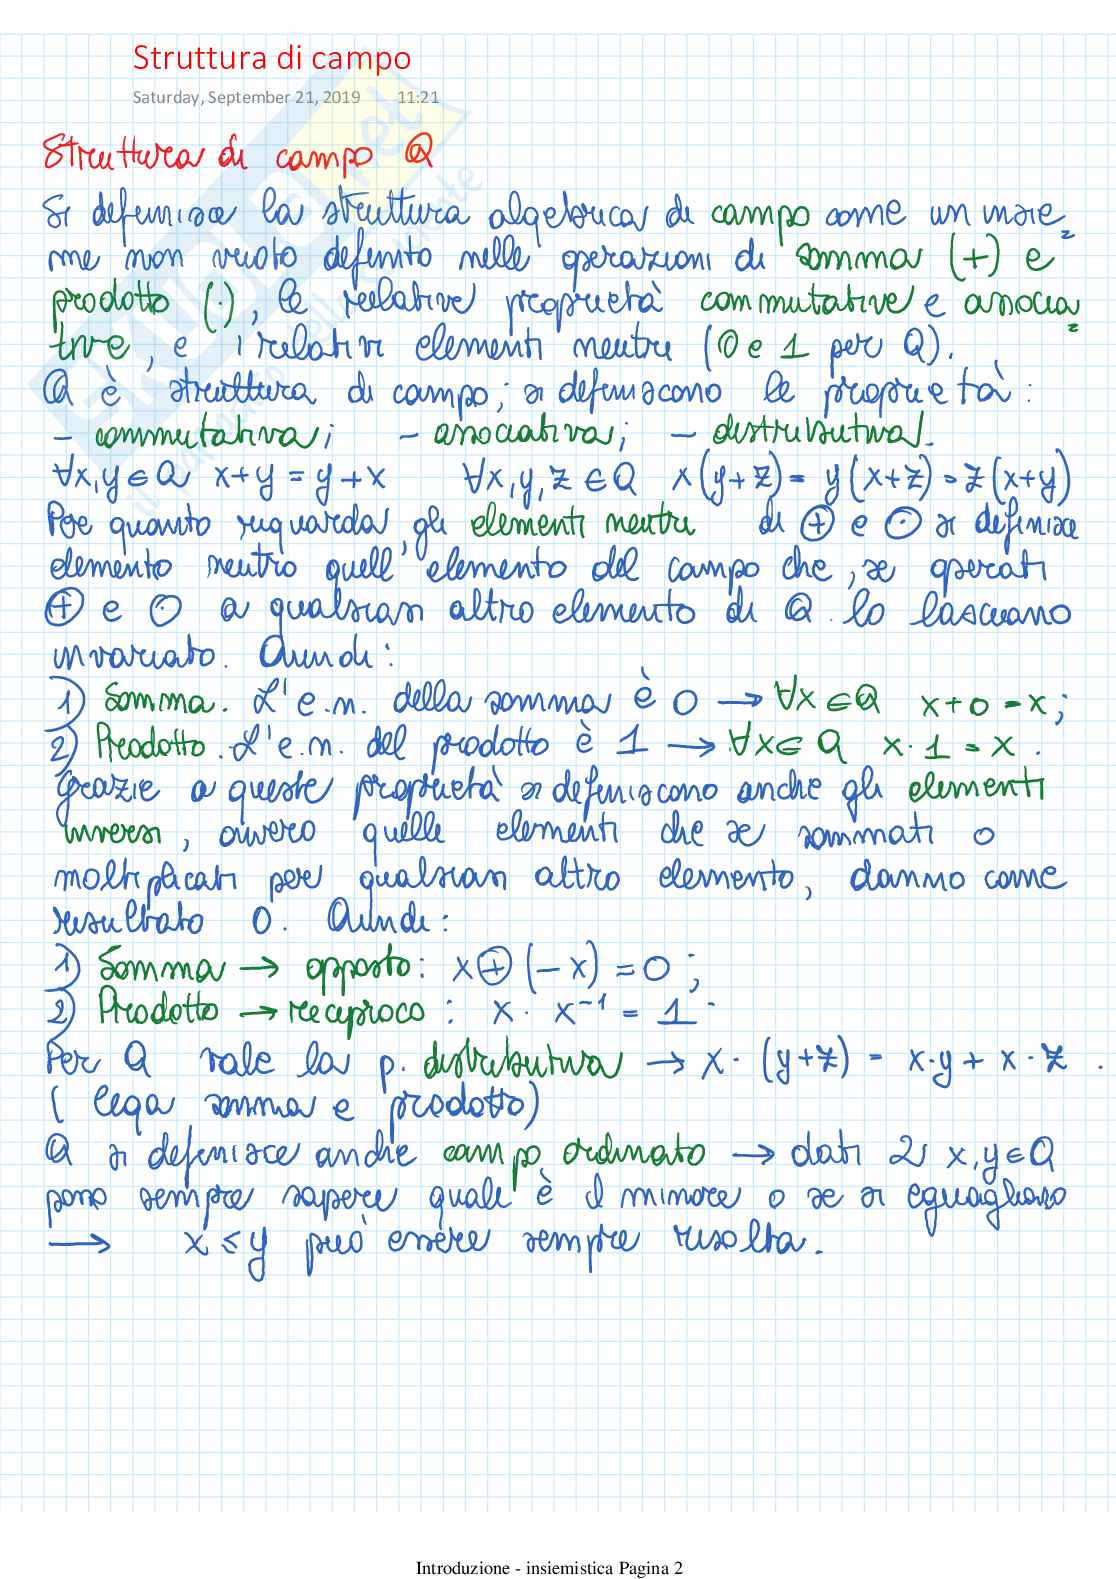 Struttura di campo
Saturday, September 21, 2019 11:21
Struttura di campo Q
Si definisce la struttura algebrica di campo come un insie
me non vuoto definito nelle operazioni di somma (+) e
prodotto (·), le relative proprietà commutative e associa
tive, e i relativi elementi neutri (0 e 1 per Q).
Q è struttura di campo; si definiscono le proprietà:
- commutativa; - associativa; - distributiva.
∀x,y∈Q x+y=y+x ∀x,y,z∈Q x(y+z)=y(x+z)=z(x+y)
Per quanto riguarda gli elementi neutri di ⊕ e ⊙ si definisce
elemento neutro quell'elemento del campo che, se operati
⊕ e ⊙ a qualsiasi altro elemento di Q lo lasciano
invariato. Quindi:
1) Somma. L'e.n. della somma è 0 → ∀x∈Q x+0=x;
2) Prodotto. L'e.n. del prodotto è 1 → ∀x∈Q x·1=x.
Grazie a queste proprietà si definiscono anche gli elementi
inversi, ovvero quelle elementi che se sommati o
moltiplicati per qualsiasi altro elemento, danno come
risultato 0. Quindi:
1) Somma → opposto: x⊕(-x)=0;
2) Prodotto → reciproco: x·x⁻¹=1.
Per Q vale la p. distributiva → x·(y+z)=x·y+x·z.
(lega somma e prodotto)
Q si definisce anche campo ordinato → dati 2 x,y∈Q
posso sempre sapere quale è il minore o se si eguagliano
→ x≤y può essere sempre risolta.
Introduzione - insiemistica Pagina 2